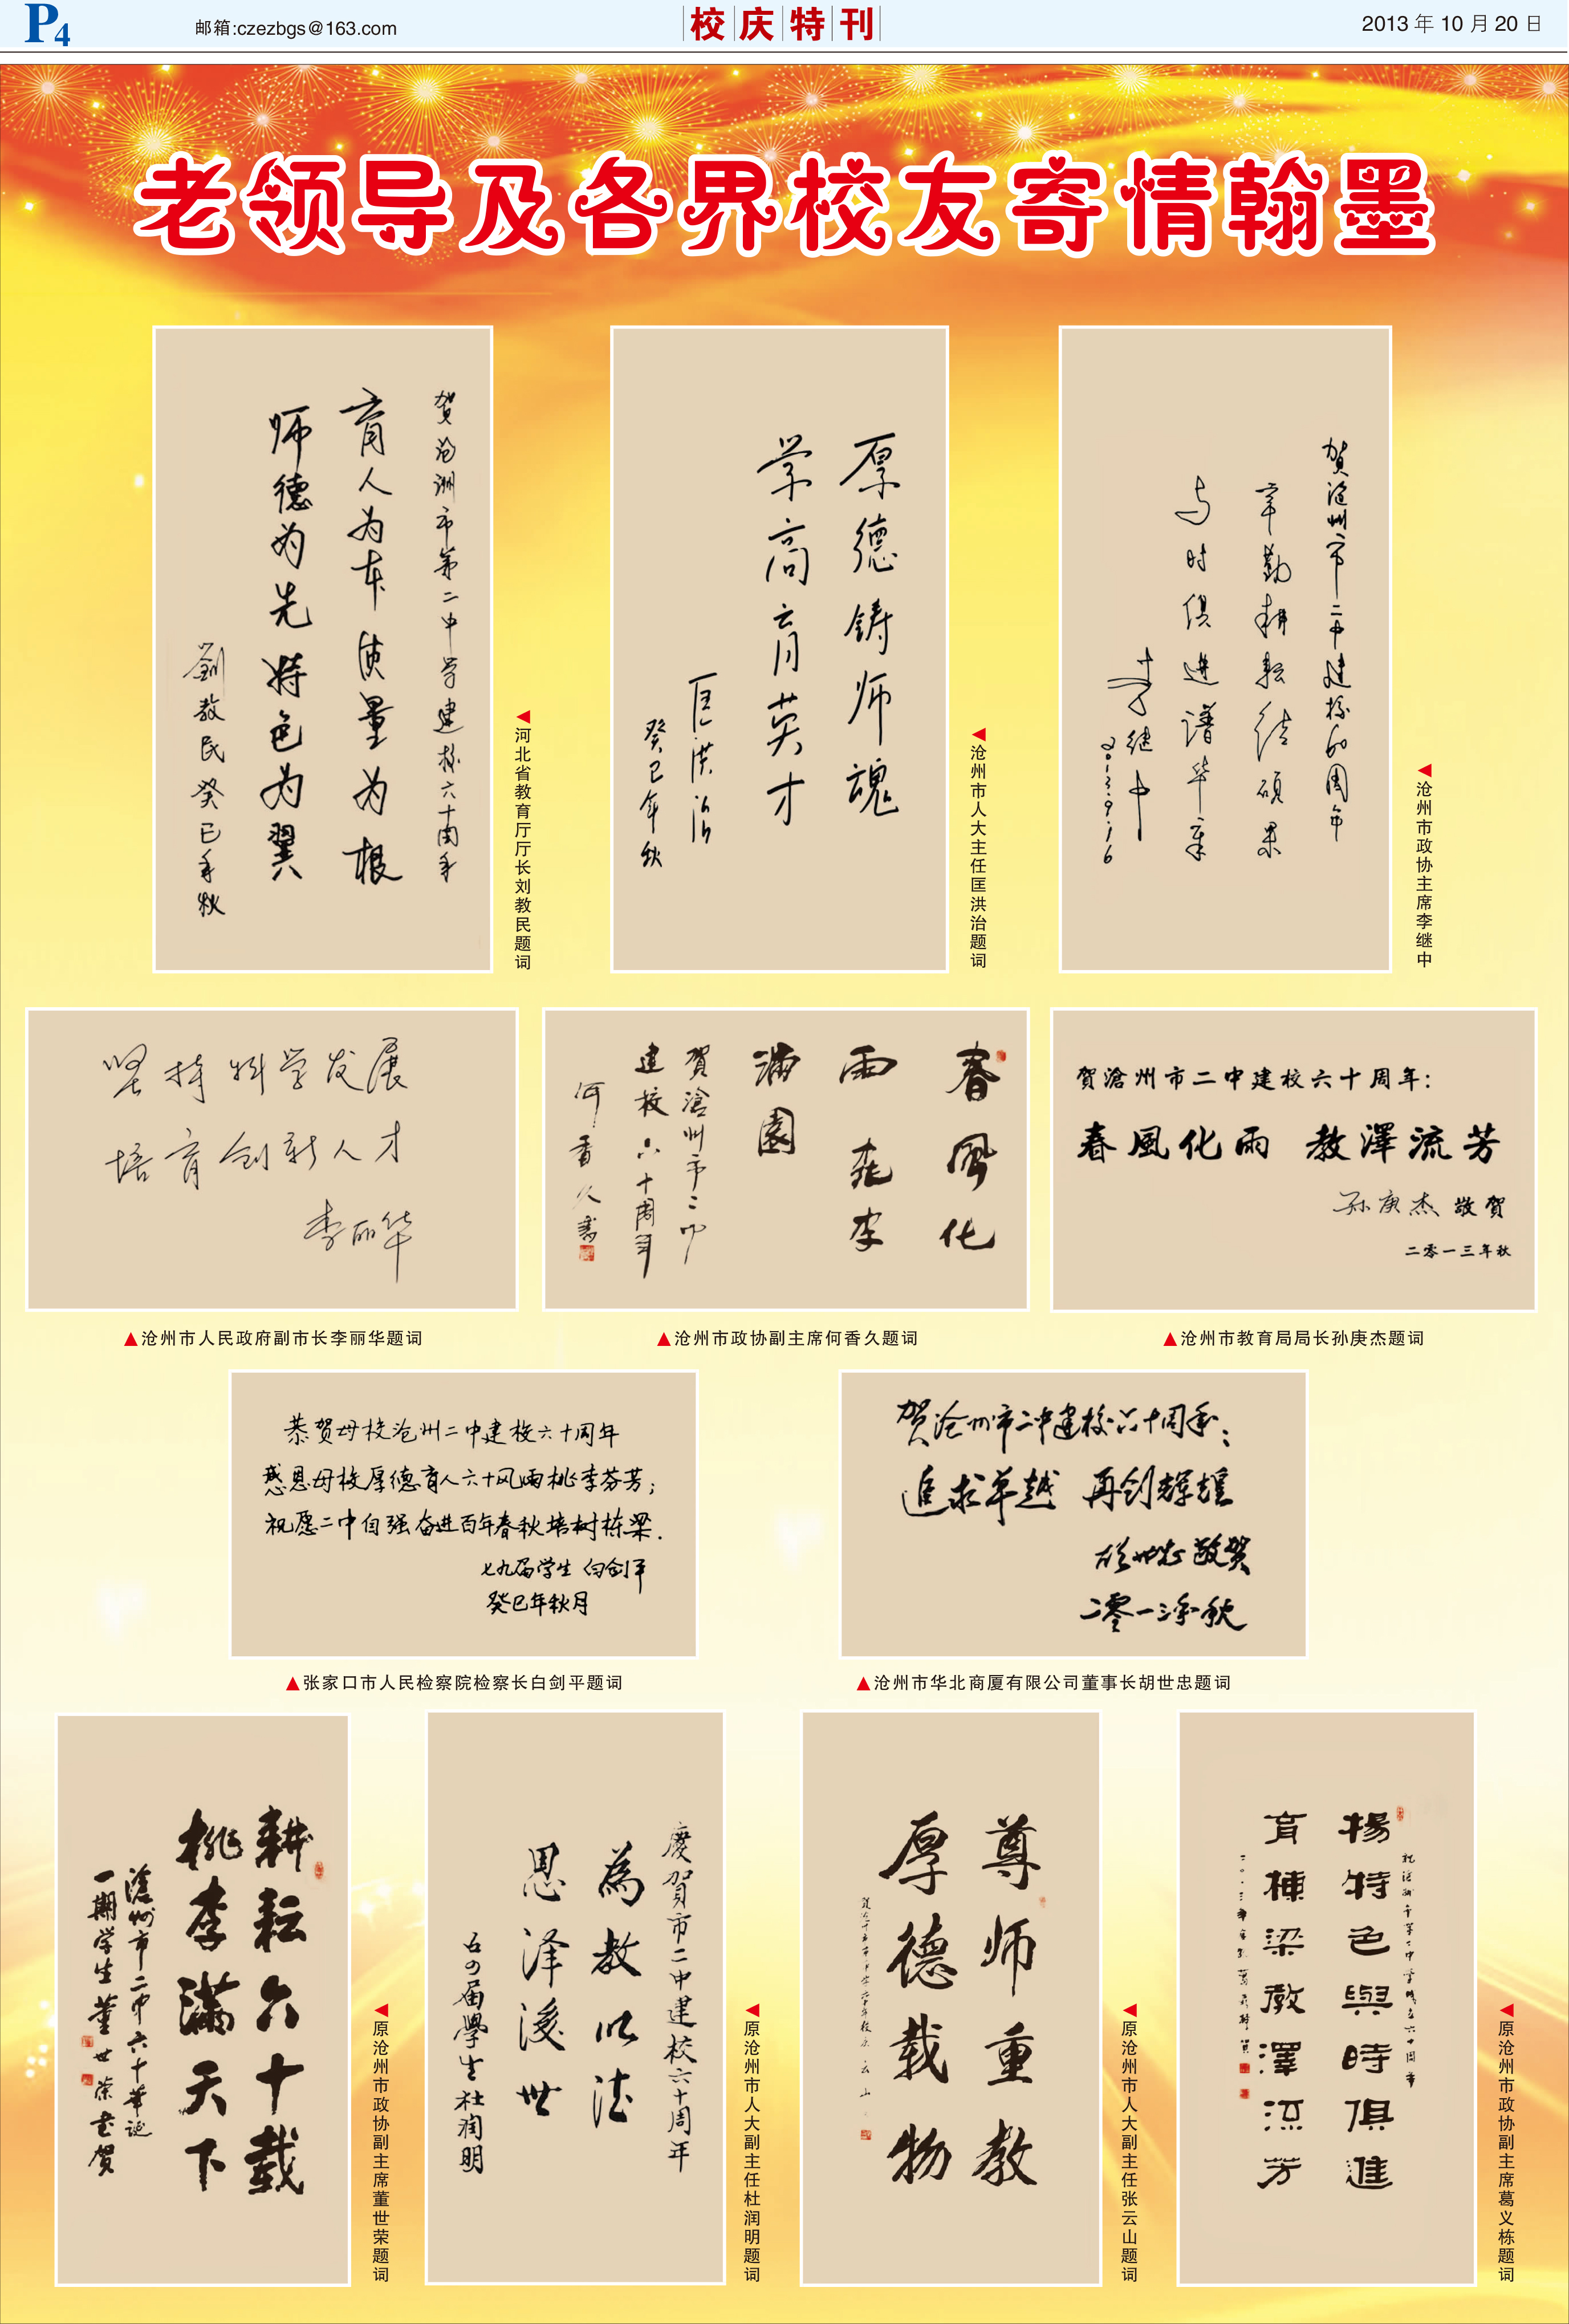 P4
邮箱:czezbgs@163.com
校庆特刊
2013 年 10 月 20 日
老领导及各界校友寄情翰墨
贺沧州市第二中学建校六十周年
育人为本 质量为根
师德为先 特色为翼
劉教民 癸巳年秋
◀河北省教育厅厅长刘教民题词
厚德铸师魂
学高育英才
匡洪治
癸巳年秋
◀沧州市人大主任匡洪治题词
贺沧州市二中建校60周年
辛勤耕耘结硕果
与时俱进谱华章
李继中
2013.9.16
◀沧州市政协主席李继中
坚持科学发展
培育创新人才
李丽华
▲沧州市人民政府副市长李丽华题词
春風化
雨桃李
满園
賀滄州市二中
建校六十周年
何香久書
▲沧州市政协副主席何香久题词
贺滄州市二中建校六十周年：
春風化雨 教澤流芳
孙庚杰 敬贺
二零一三年秋
▲沧州市教育局局长孙庚杰题词
恭贺母校沧州二中建校六十周年
感恩母校厚德育人六十风雨桃李芬芳；
祝愿二中自强奋进百年春秋培树栋梁.
七九届学生 白剑平
癸巳年秋月
▲张家口市人民检察院检察长白剑平题词
贺沧州市二中建校六十周年：
追求卓越 再创辉煌
胡世忠敬贺
二零一三年秋
▲沧州市华北商厦有限公司董事长胡世忠题词
耕耘六十載
桃李滿天下
滄州市二中六十華诞
一期学生董世荣书贺
◀原沧州市政协副主席董世荣题词
慶賀市二中建校六十周年
為教以法
恩泽後世
六四届學生杜润明
◀原沧州市人大副主任杜润明题词
尊师重教
厚德载物
◀原沧州市人大副主任张云山题词
祝滄州市第二中学成立六十周年
揚特色與時俱進
育棟梁教澤流芳
◀原沧州市政协副主席葛义栋题词